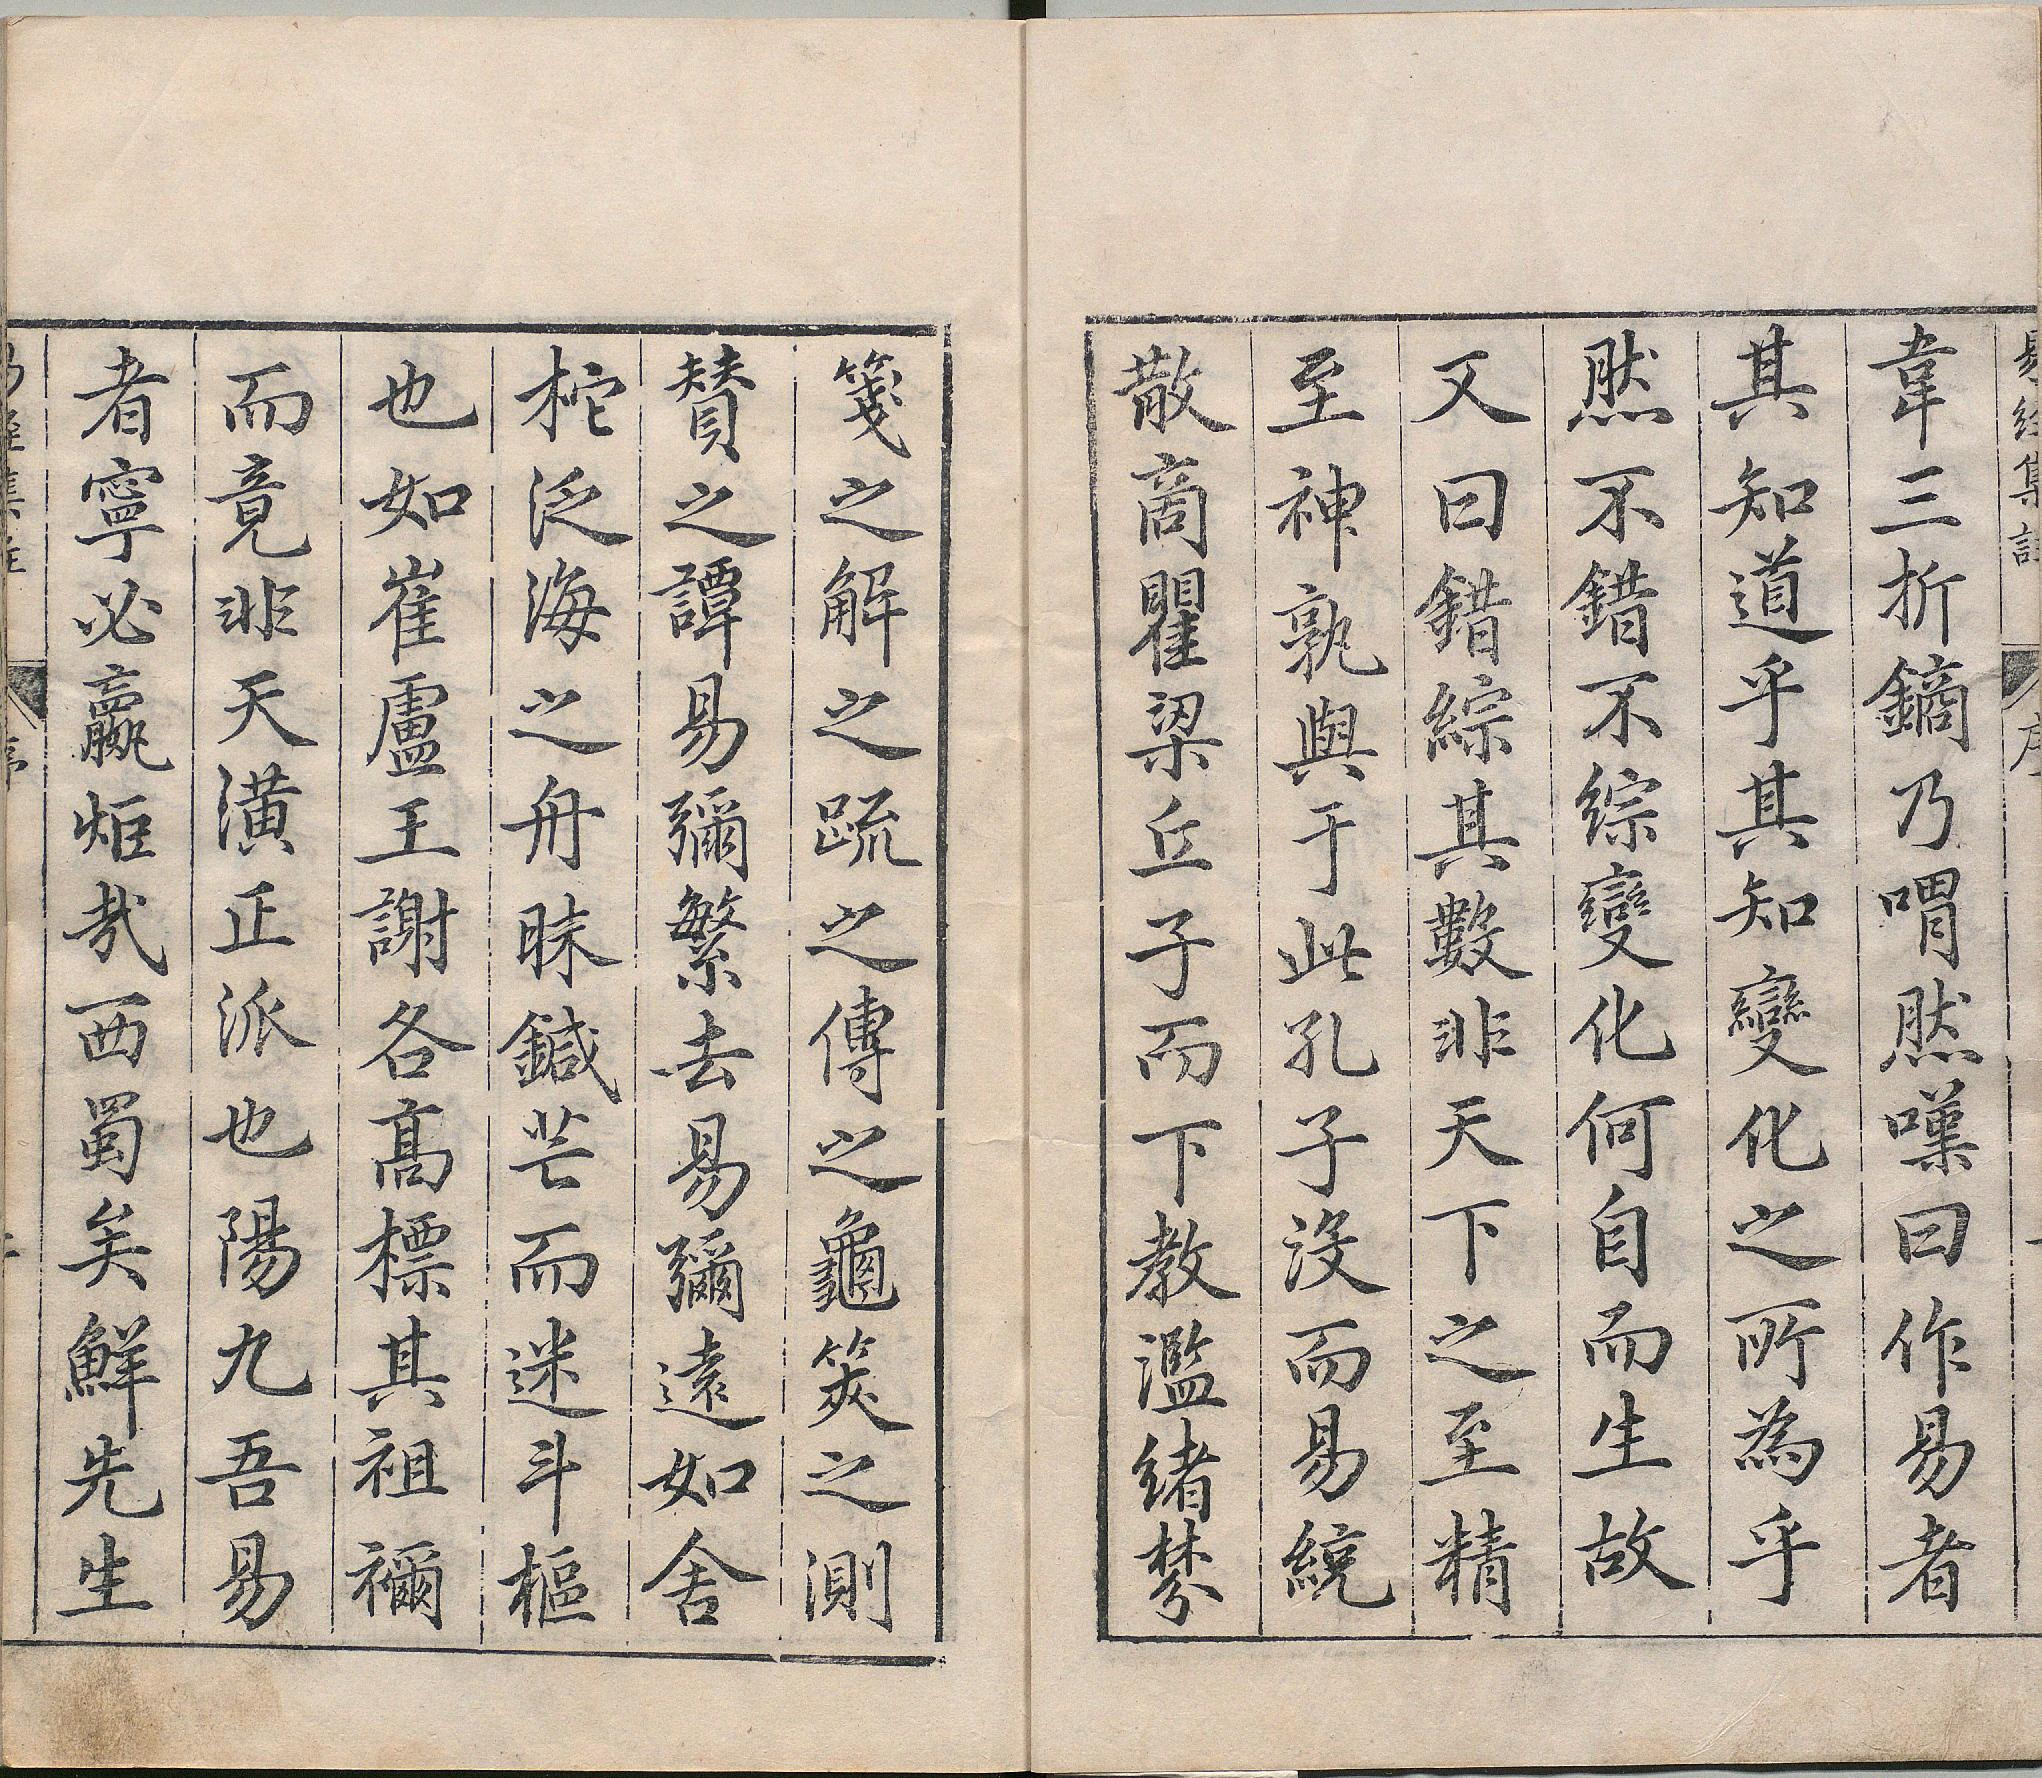 易經集註 序
韋三折鏑乃喟然嘆曰作易者
其知道乎其知變化之所為乎
然不錯不綜變化何自而生故
又曰錯綜其數非天下之至精
至神孰與于此孔子沒而易統
散商瞿梁丘子而下教濫緒棼
箋之解之疏之傳之龜筴之測
贊之譚易彌繁去易彌遠如舍
柁泛海之舟昧鍼芒而迷斗樞
也如崔盧王謝各高標其祖禰
而竟非天潢正派也陽九吾易
者寧必嬴炬哉西蜀矣鮮先生